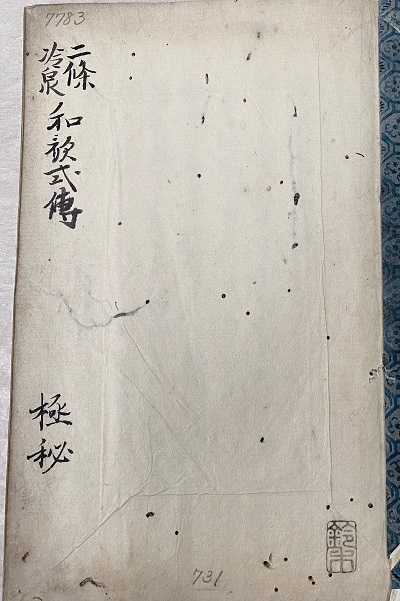 7783
二條
冷泉
和歌式傳
極秘
731